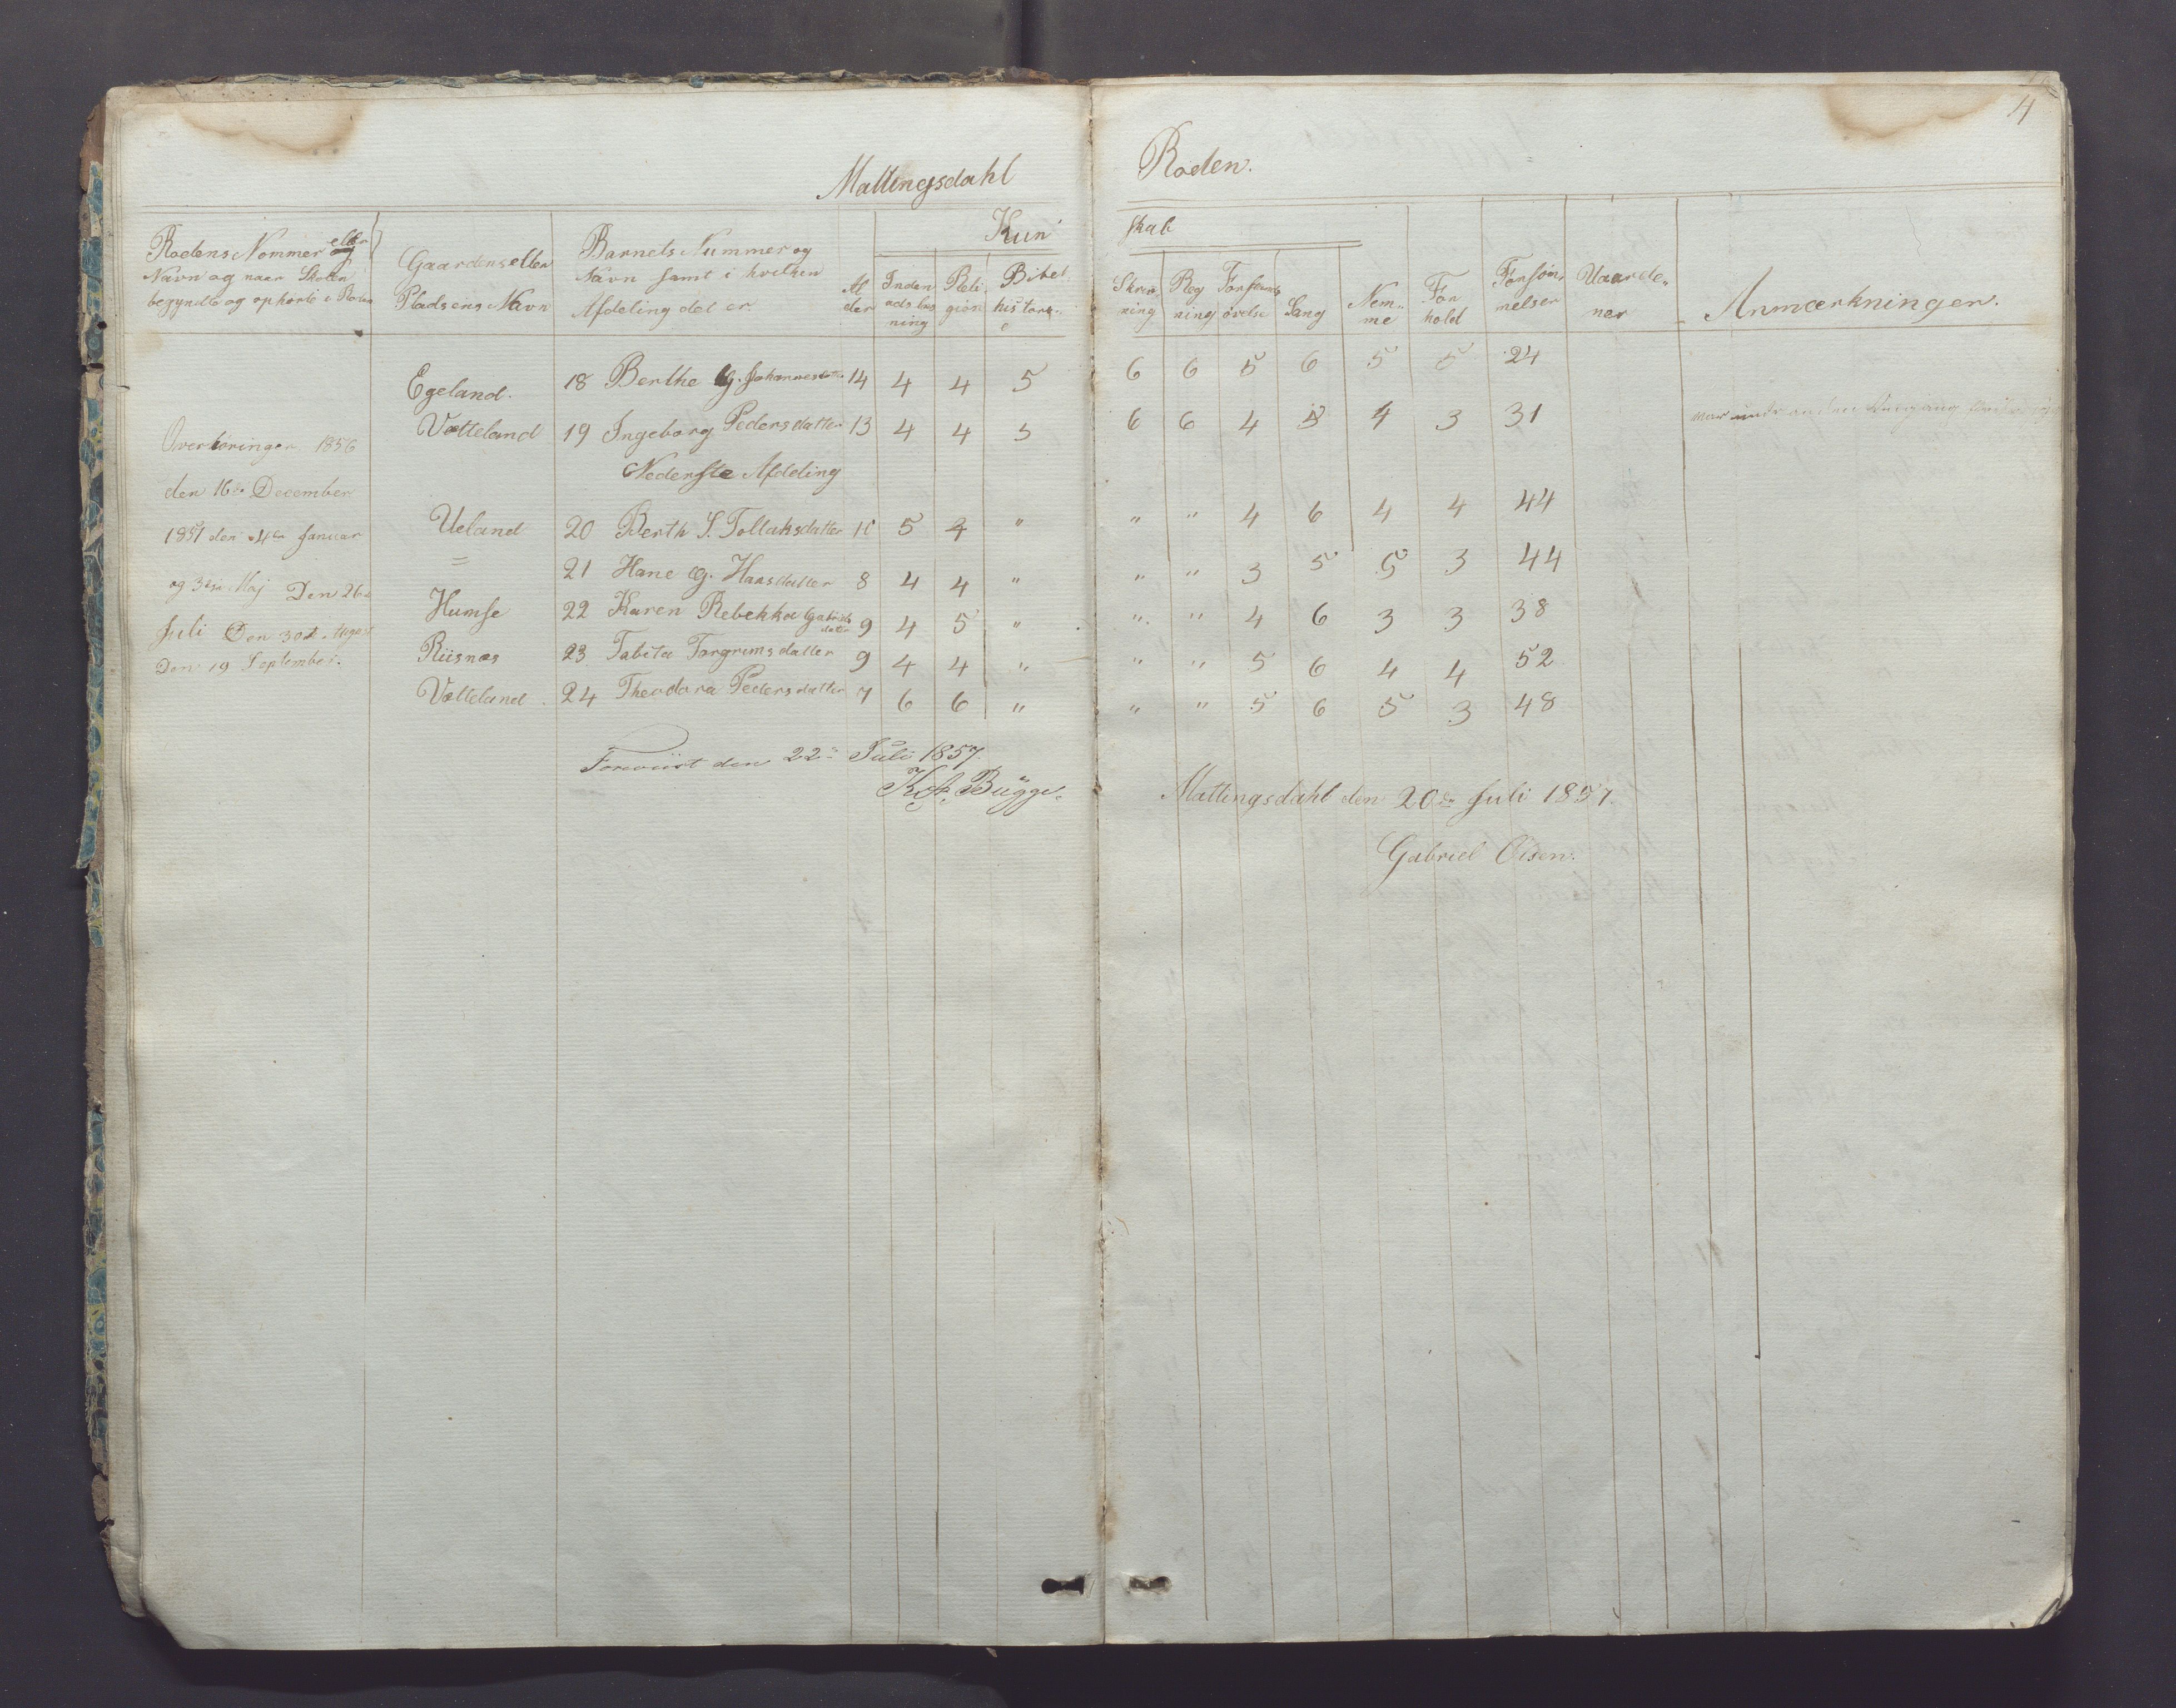 4
Mattingsdahl Roden.
Rodens Nommer eller og
Navn og naar Skolen
begyndte og ophørte i Roden
Gaardens eller
Pladsens Navn
Barnets Nummer og
Navn samt i hvilken
Afdeling det er.
Al
der
Kun skab
Inden
adslæs
ning
Reli
gion
Bibel
historie
Skriv
ning
Reg
ning
Forstands
øvelse
Sang
Nem
me
For
hold
Forsøm
melser
Uaarde
ner
Anmærkninger.
Egeland. 18 Berthe G. Johannesdatter 14 4 4 5 6 6 5 6 5 5 24
Vætteland 19 Ingeborg Pedersdatter 13 4 4 5 6 6 4 5 4 3 31 var
Nederste Afdeling
Ueland 20 Berth S. Tollaksdatter 10 5 4 " " " 4 6 4 4 44
= 21 Hane G. Hansdatter 8 4 4 " " " 3 5 5 3 44
Humse 22 Karen Rebekka Gabriels
datter 9 4 5 " " " 4 6 3 3 38
Riisnæs 23 Tabita Torgrimsdatter 9 4 4 " " " 5 6 4 4 52
Vætteland. 24 Theodora Pedersdatter 7 6 6 " " " 5 6 5 3 48
Overhøringer 1856
den 16de December
1857 den 4de Januar
og 3die Maj Den 26de
Juli Den 30te August
Den 19 September.
Foreviist den 22de Juli 1857.
K. A. Bügge.
Mattingsdahl den 20de Juli 1857.
Gabriel Olsen.